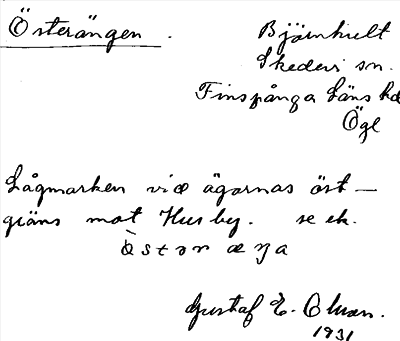 Österängen.
Björnhult
Skedevi sn.
Finspånga Läns hd
Ögl
Lågmarken vid ägornas öst-
gräns mot Husby. se ek.
Gustaf E. Olson.
1931